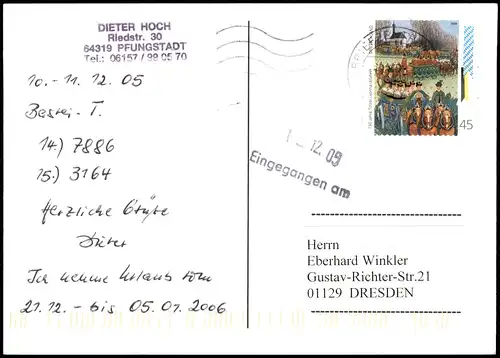 DIETER HOCH
Riedstr. 30
64319 PFUNGSTADT
Tel.: 06157 / 99 05 70
10.-11. 12. 05
Bastei-T.
14.) 7886
15.) 3164
Herzliche Grüße
Dieter
Ich nehme Urlaub vom
21.12. - bis 05.01.2006
45
12. 05
Eingegangen am
Herrn
Eberhard Winkler
Gustav-Richter-Str.21
01129 DRESDEN